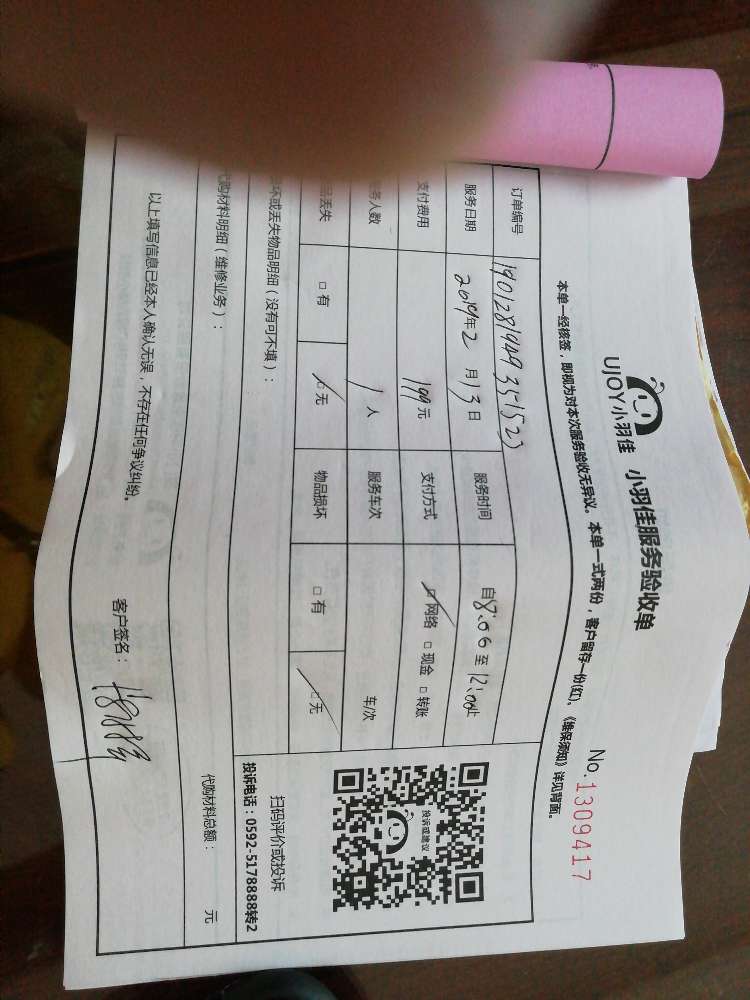 UJOY小羽佳 小羽佳服务验收单
No.1309417
本单一经核签，即视为对本次服务验收无异议。本单一式两份，客户留存一份(红)。《维保须知》详见背面。
订单编号 1901281949351523
服务日期 2019年2月13日 服务时间 自8:06至12:00止
支付费用 199元 支付方式 ☑网络 □现金 □转账
务人数 1人 服务车次 车/次
品丢失 □有 ☑无 物品损坏 □有 ☑无
投诉或建议
扫码评价或投诉
投诉电话：0592-5178888转2
坏或丢失物品明细（没有可不填）：
代购材料明细（维修业务）：
代购材料总额： 元
以上填写信息已经本人确认无误，不存在任何争议纠纷。
客户签名：